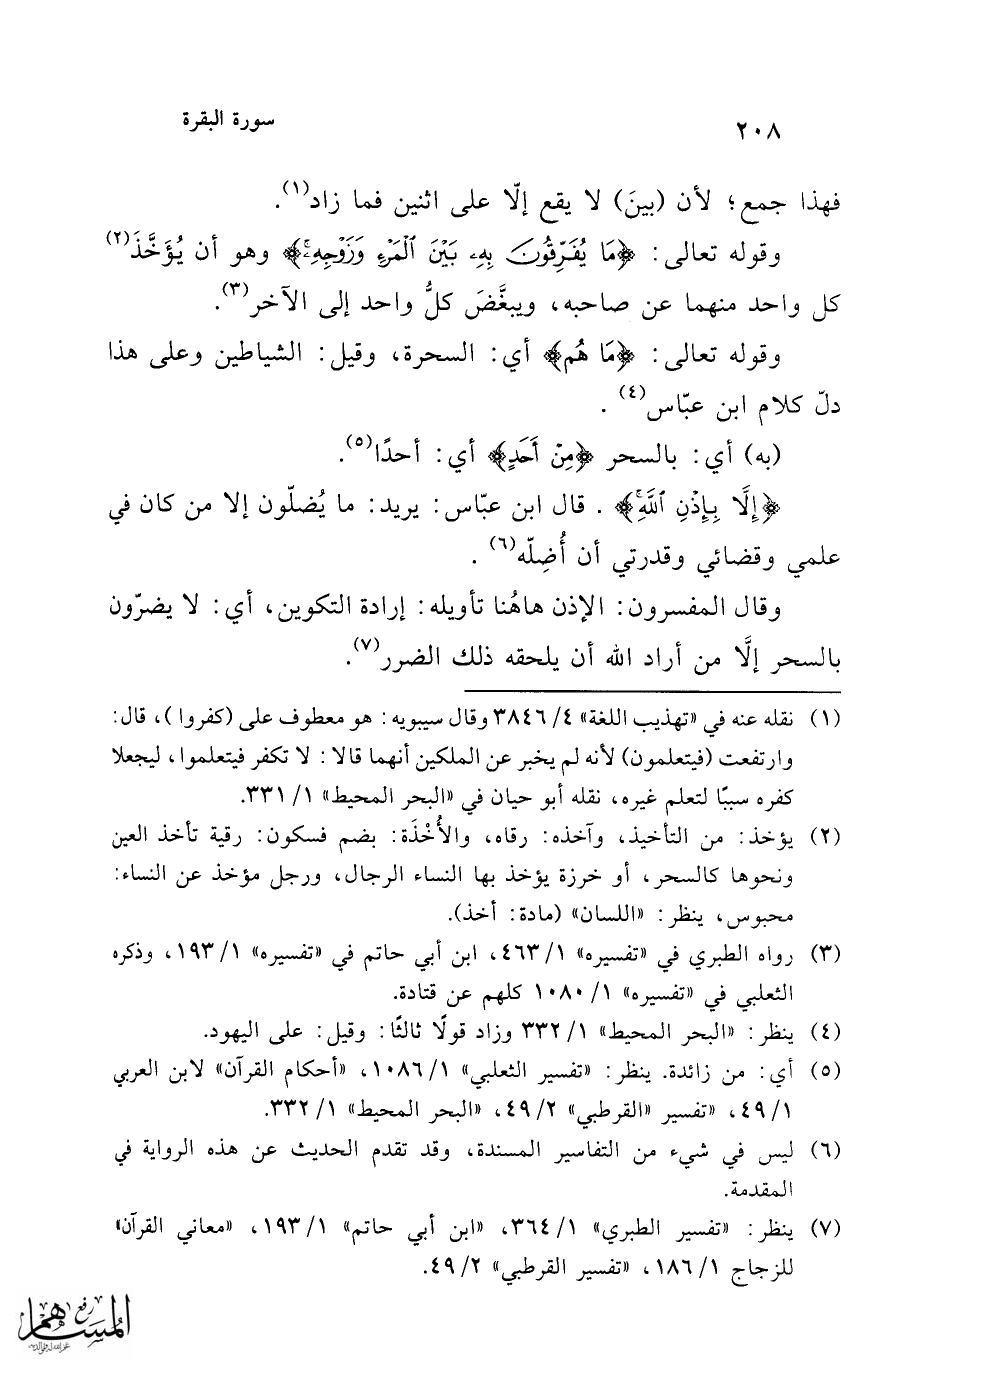 ٢٠٨ سورة البقرة
فهذا جمع؛ لأن (بينَ) لا يقع إلّا على اثنين فما زاد(١).
وقوله تعالى: ﴿مَا يُفَرِّقُونَ بِهِۦ بَيْنَ ٱلْمَرْءِ وَزَوْجِهِۦۚ﴾ وهو أن يُؤَخَّذَ(٢)
كل واحد منهما عن صاحبه، ويبغَّضَ كلُّ واحد إلى الآخر(٣).
وقوله تعالى: ﴿مَا هُم﴾ أي: السحرة، وقيل: الشياطين وعلى هذا
دلّ كلام ابن عبّاس(٤) .
(به) أي: بالسحر ﴿مِنْ أَحَدٍ﴾ أي: أحدًا(٥).
﴿إِلَّا بِإِذْنِ ٱللَّهِۚ﴾ . قال ابن عبّاس: يريد: ما يُضلّون إلا من كان في
علمي وقضائي وقدرتي أن أُضِلّه(٦) .
وقال المفسرون: الإذن هاهُنا تأويله: إرادة التكوين، أي: لا يضرّون
بالسحر إلَّا من أراد الله أن يلحقه ذلك الضرر(٧).
(١) نقله عنه في «تهذيب اللغة» ٤/ ٣٨٤٦ وقال سيبويه: هو معطوف على (كفروا )، قال:
وارتفعت (فيتعلمون) لأنه لم يخبر عن الملكين أنهما قالا: لا تكفر فيتعلموا، ليجعلا
كفره سببًا لتعلم غيره، نقله أبو حيان في «البحر المحيط» ١/ ٣٣١.
(٢) يؤخذ: من التأخيذ، وآخذه: رقاه، والأُخْذَة: بضم فسكون: رقية تأخذ العين
ونحوها كالسحر، أو خرزة يؤخذ بها النساء الرجال، ورجل مؤخذ عن النساء:
محبوس، ينظر: «اللسان» (مادة: أخذ).
(٣) رواه الطبري في «تفسيره» ١/ ٤٦٣، ابن أبي حاتم في «تفسيره» ١/ ١٩٣، وذكره
الثعلبي في «تفسيره» ١/ ١٠٨٠ كلهم عن قتادة.
(٤) ينظر: «البحر المحيط» ١/ ٣٣٢ وزاد قولًا ثالثًا: وقيل: على اليهود.
(٥) أي: من زائدة. ينظر: «تفسير الثعلبي» ١/ ١٠٨٦، «أحكام القرآن» لابن العربي
١/ ٤٩، «تفسير «القرطبي» ٢/ ٤٩، «البحر المحيط» ١/ ٣٣٢.
(٦) ليس في شيء من التفاسير المسندة، وقد تقدم الحديث عن هذه الرواية في
المقدمة.
(٧) ينظر: «تفسير الطبري» ١/ ٣٦٤، «ابن أبي حاتم» ١/ ١٩٣، «معاني القرآن»
للزجاج ١/ ١٨٦، «تفسير القرطبي» ٢/ ٤٩.